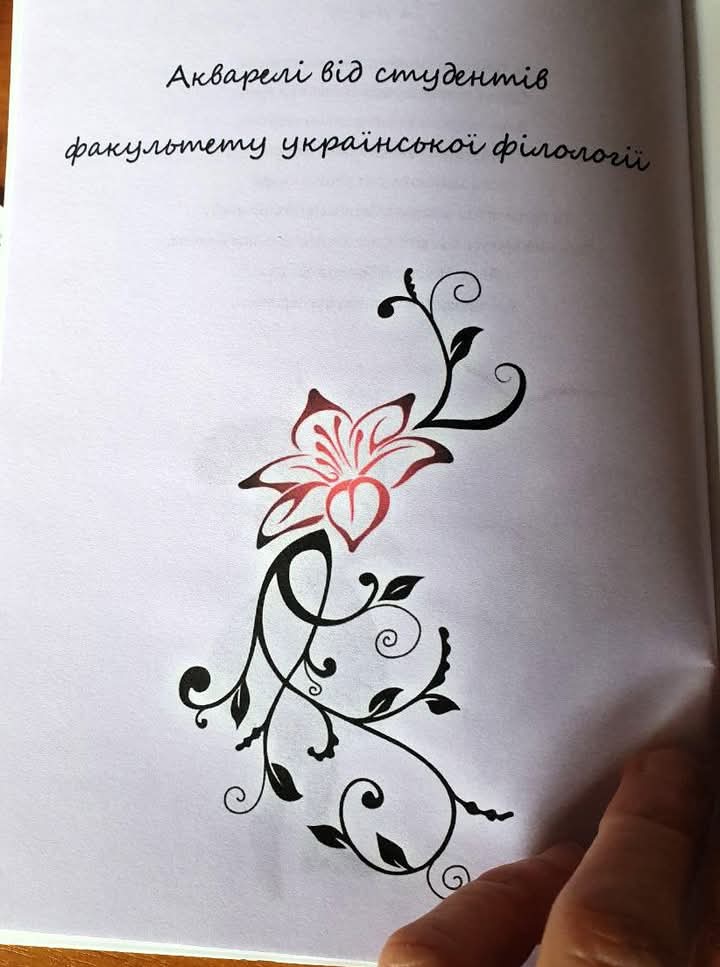 Акварелі від студентів
факультету української філології